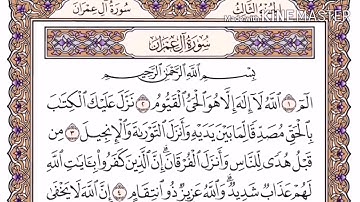 سُورَةُ آلِ عِمْرَان
الجُزْءُ الثَّالِثُ
KINEMASTER
سُورَةُ آلِ عِمْرَان
بِسْمِ اللَّهِ الرَّحْمَٰنِ الرَّحِيمِ
الٓمٓ ١ اللَّهُ لَا إِلَٰهَ إِلَّا هُوَ الْحَيُّ الْقَيُّومُ ٢ نَزَّلَ عَلَيْكَ الْكِتَٰبَ
بِالْحَقِّ مُصَدِّقًا لِّمَا بَيْنَ يَدَيْهِ وَأَنزَلَ التَّوْرَىٰةَ وَالْإِنجِيلَ ٣ مِن
قَبْلُ هُدًى لِّلنَّاسِ وَأَنزَلَ الْفُرْقَانَ إِنَّ الَّذِينَ كَفَرُوا بِـَٔايَٰتِ اللَّهِ
لَهُمْ عَذَابٌ شَدِيدٌ وَاللَّهُ عَزِيزٌ ذُو انتِقَامٍ ٤ إِنَّ اللَّهَ لَا يَخْفَىٰ